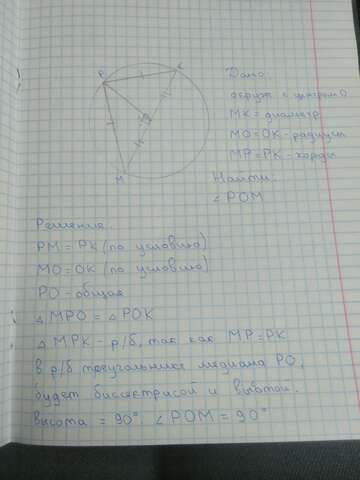 P
K
O
M
Дано
окруж с центром O
MK = диаметр
MO = OK - радиусы
MP = PK - хорды
Найти.
∠POM
Решение.
PM = PK (по условию)
MO = OK (по условию)
PO - общая
△ MPO = △ POK
△ MPK - р/б, так как MP = PK
в р/б треугольнике медиана PO,
будет биссектрисой и высотой.
высота = 90°, ∠ POM = 90°